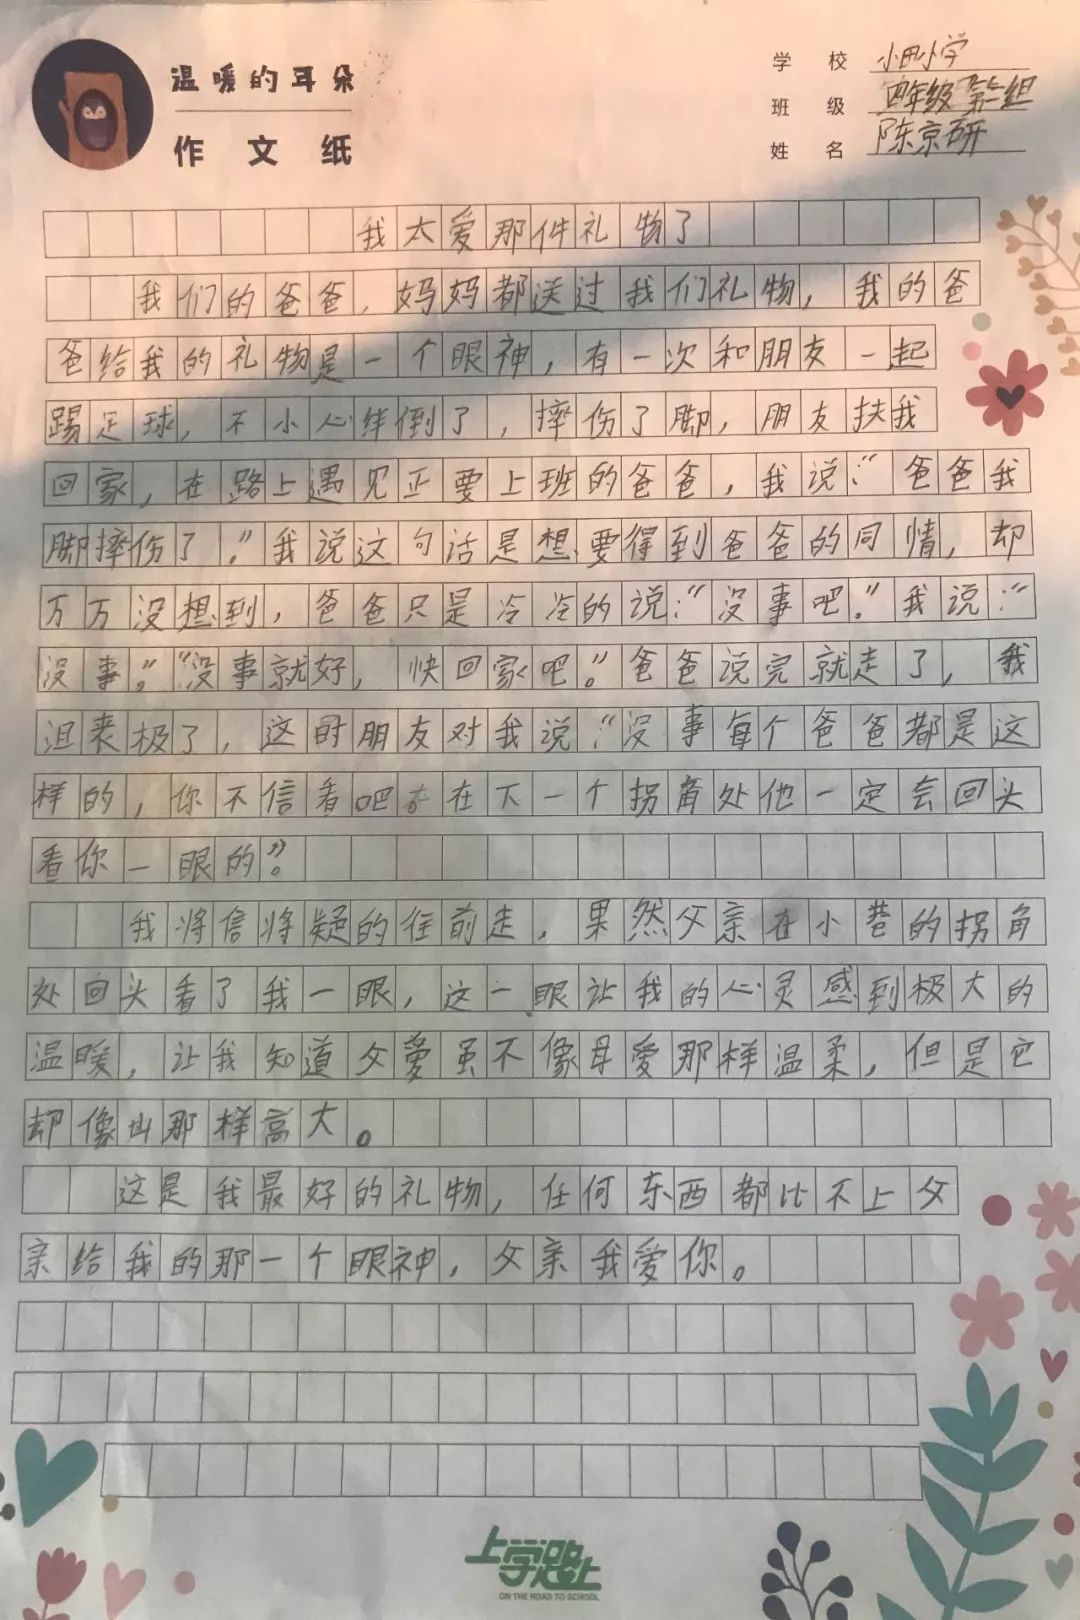 温暖的耳朵
作文纸
学校 小田小学
班级 四年级 第一组
姓名 陈京研
我太爱那件礼物了
我们的爸爸，妈妈都送过我们礼物，我的爸
爸给我的礼物是一个眼神，有一次和朋友一起
踢足球，不小心绊倒了，摔伤了脚，朋友扶我
回家，在路上遇见正要上班的爸爸，我说：“爸爸我
脚摔伤了。”我说这句话是想要得到爸爸的同情，却
万万没想到，爸爸只是冷冷的说：“没事吧。”我说：“
没事。”“没事就好，快回家吧。”爸爸说完就走了，我
沮丧极了，这时朋友对我说：“没事每个爸爸都是这
样的，你不信看吧在下一个拐角处他一定会回头
看你一眼的”。
我将信将疑的往前走，果然父亲在小巷的拐角
处回头看了我一眼，这一眼让我的心灵感到极大的
温暖，让我知道父爱虽不像母爱那样温柔，但是它
却像山那样高大。
这是我最好的礼物，任何东西都比不上父
亲给我的那一个眼神，父亲我爱你。
上学路上
ON THE ROAD TO SCHOOL